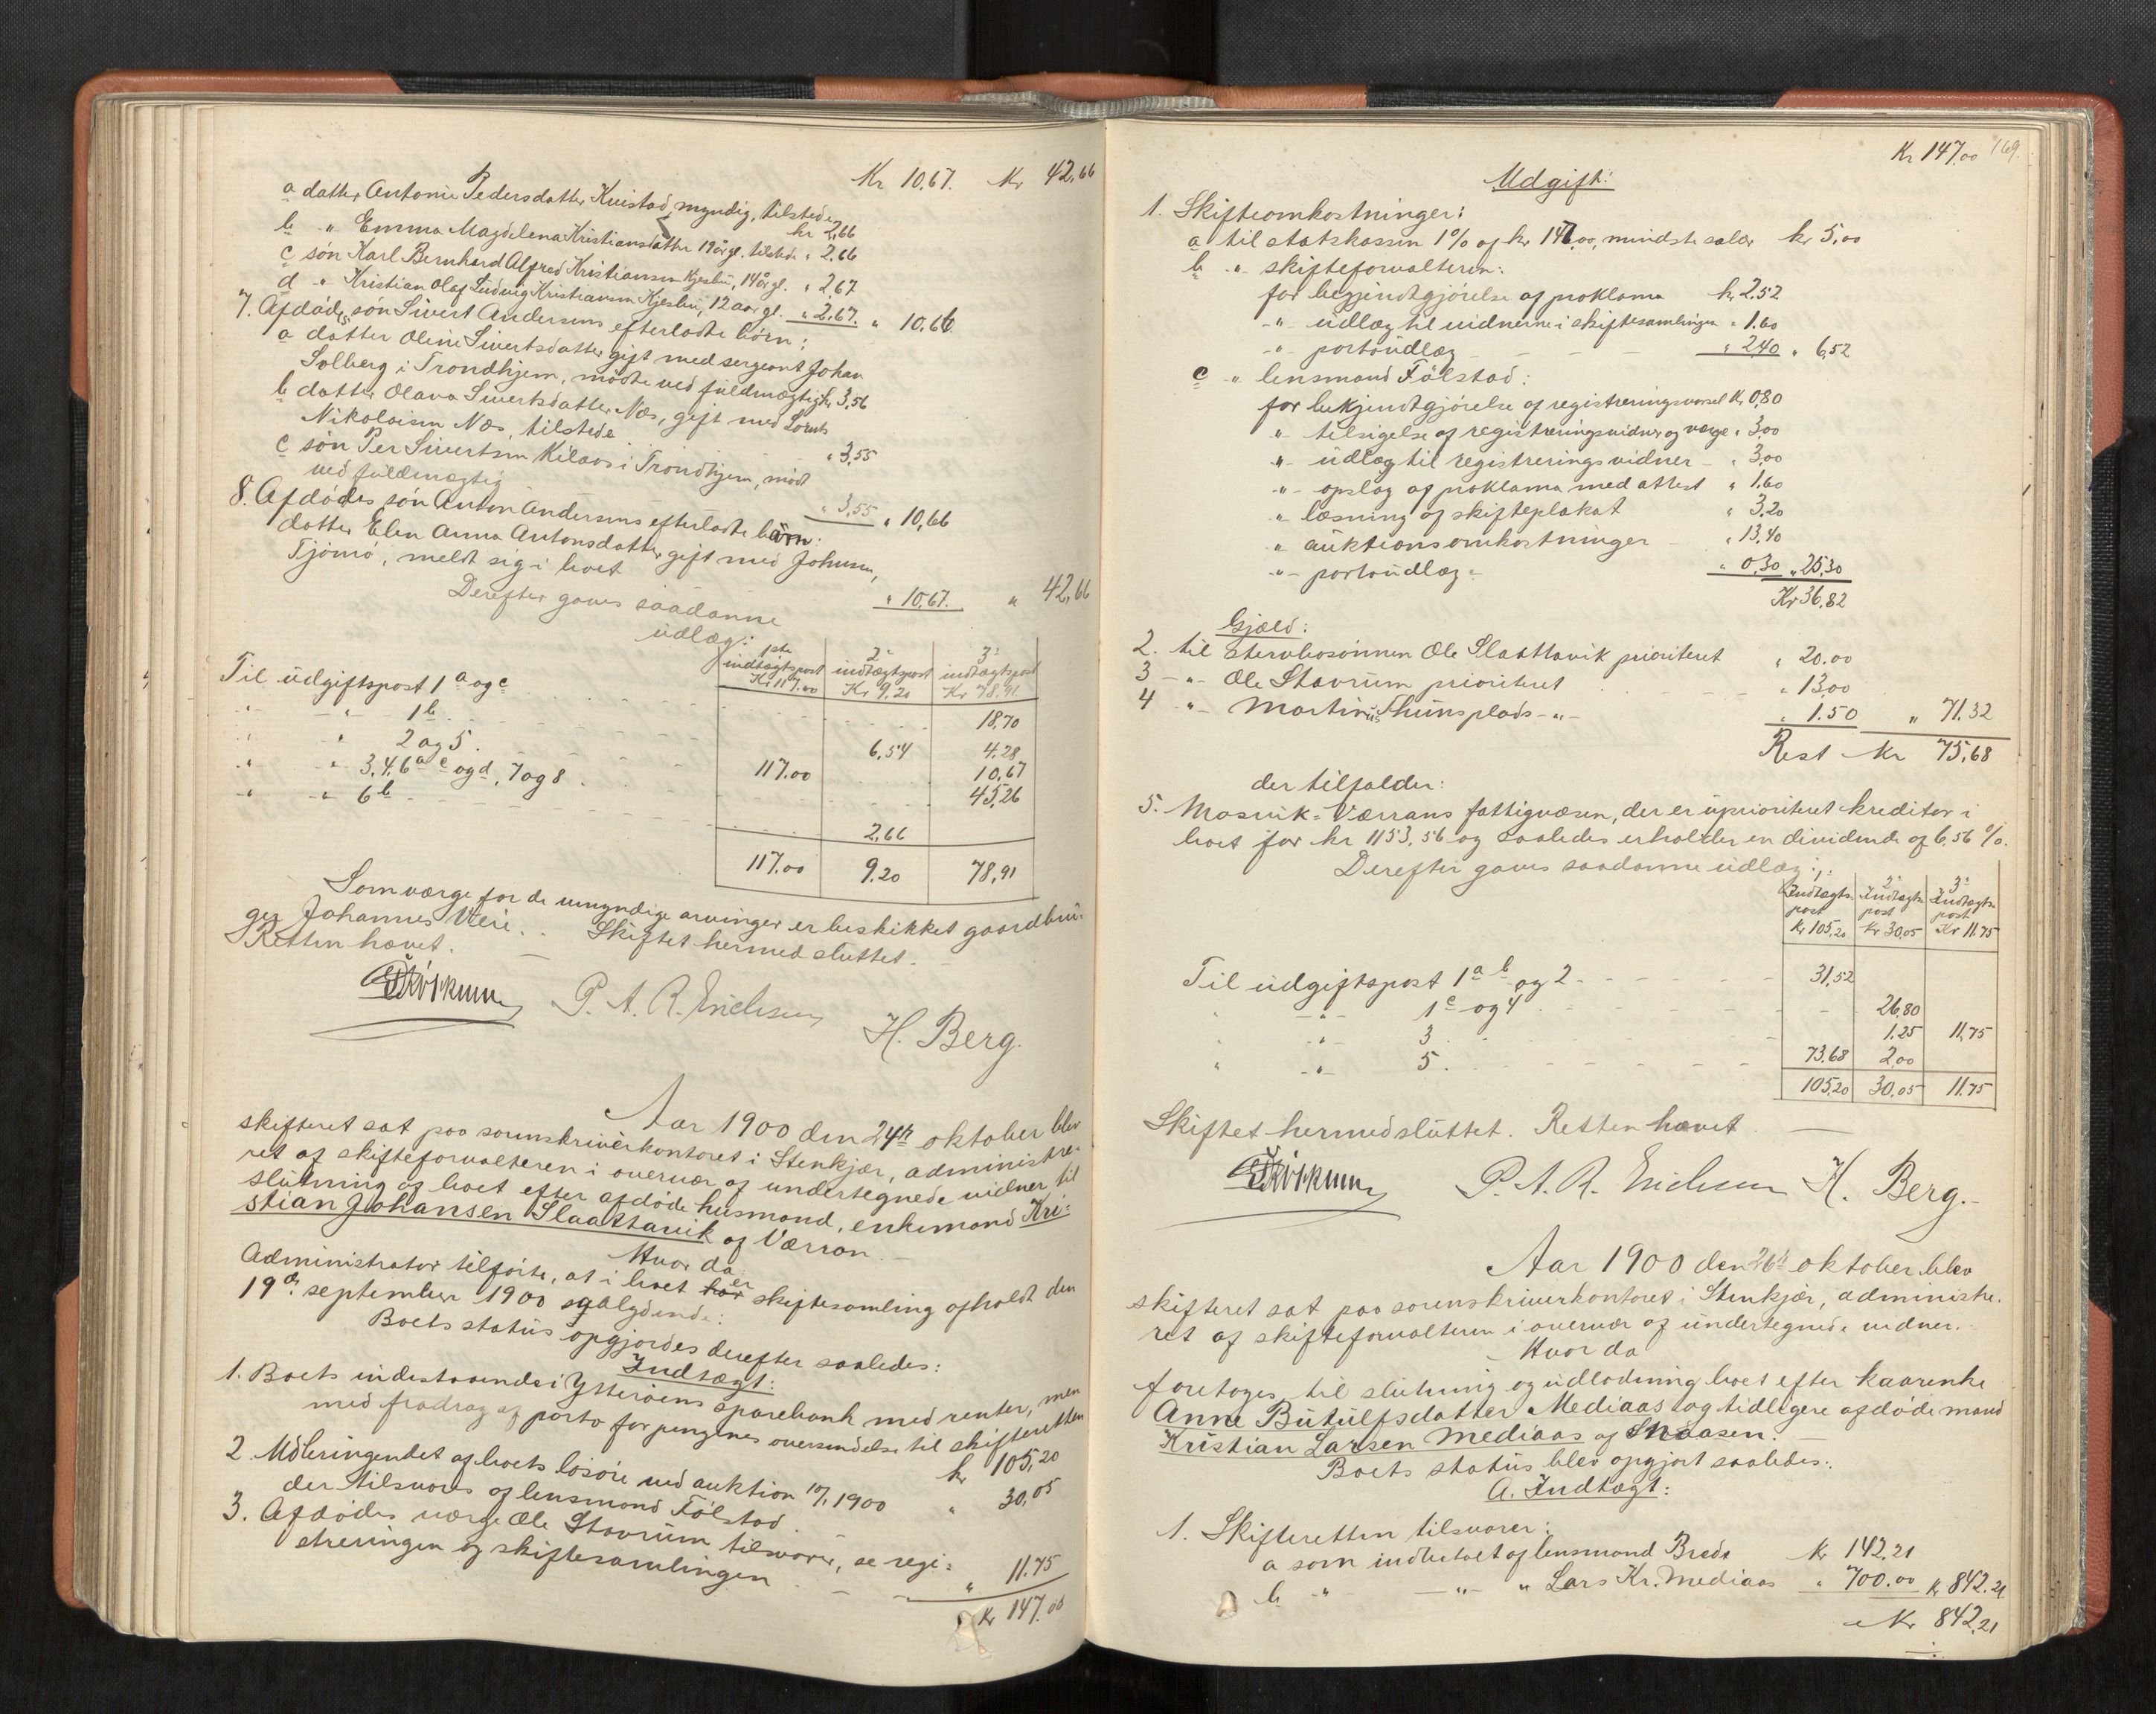 Kr 10.67. Kr 42.66
a datter Antonie Pedersdatter Kvistad, myndig, tilstede
kr 2,66
b " Emma Magdelena Kristiansdatter 19 år gl. tilstede " 2.66
c søn Karl Bernhard Alfred Kristiansen Kjesbu, 14 år gl. " 2,67
d " Kristian Olaf Ludvig Kristiansen Kjesbu, 12 aar gl. " 2.67. " 10,66
7. Afdødes søn Sivert Andersens efterladte børn:
a datter Oline Sivertsdatter gift med sergeant Johan
Solberg i Trondhjem, mødte ved fuldmægtig kr 3,56
b datter Olava Sivertsdatter Næs, gift med Lornts
Nikolaisen Næs, tilstede " 3,55
c søn Per Sivertsen Kilaas i Trondhjem, mødt
ved fuldmægtig " 3,55 " 10,66
8. Afdødes søn Anton Andersens efterladte børn:
datter Elen Anna Antonsdatter gift med Johnsen,
Tjømø, meldt sig i boet " 10,67. " 42,66
Derefter gaves saadanne
udlæg:
1ste indtægtspost Kr 117.00 2den indtægtspost Kr 9.20 3die indtægtspost Kr 78,91
Til udgiftspost 1 a og c 18,70
" -"- 1 b. 6,54 4.28
" " 2 og 5. 117.00 10,67
" " 3, 4, 6 a c og d, 7 og 8 45,26
" " 6 b 2,66
117.00 9.20 78,91
Som værge for de umyndige arvinger er beskikket gaardbru-
ger Johannes Veie. Skiftet hermed sluttet.
Retten hævet.
P. A. R. Erichsen
H. Berg.
Aar 1900 den 24de oktober blev
skifteret sat paa sorenskriverkontoret i Stenkjær, administre-
ret af skifteforvalteren i overvær af undertegnede vidner til
slutning af boet efter afdøde husmand, enkemand Kri-
stian Johansen Slaattavik af Værran.
Hvor da
Administrator tilførte, at i boet har er skiftesamling afholdt den
19de september 1900 sålydende:
Boets status opgjordes derefter saaledes:
Indtægt:
1. Boets indestaaende i Ytterøens sparebank med renter, men
med fradrag af porto for pengenes oversendelse til skifteretten
kr 105,20
2. Udbringendet af boets løsøre ved auktion 10/1 1900
der tilsvares af lensmand Følstad " 30,05
3. Afdødes værge Ole Stavrum tilsvarer, se regi-
streringen og skiftesamlingen " 11.75
Kr 147.00
Kr 147.00 169.
Udgift:
1. Skifteomkostninger:
a til statskassen 1% af kr 147,00, mindste salær kr 5,00
b " skifteforvalteren:
for begjendtgjørelse af proklama kr 2.52
-"- udlæg til vidnerne i skiftesamlingen " 1.60
-"- portoudlæg " 2.40 " 6,52
c " lensmand Følstad:
for bekjendtgjørelse af registreringsvarsel Kr 0,80
" tilsigelse af registreringsvidner og værge " 3,00
-"- udlæg til registreringsvidner " 3,00
-"- opslag af proklama med attest " 1,60
" læsning af skifteplakat " 3,20
" auktionsomkostninger " 13,40
-"- portoudlæg " 0,30 " 25,30
Kr 36,82
Gjæld:
2. til stervbosønnen Ole Slaattavik prioriteret " 20.00
3 -"- Ole Stavrum prioriteret " 13,00
4 "- Martinus Thunsplads -"- " 1.50 " 71.32
Rest Kr 75,68
der tilfalder:
5. Mosvik-Værrans fattigvæsen, der er uprioriteret kreditor i
boet for kr 1153,56 og saaledes erholder en dividende af 6,56 %.
Derefter gaves saadanne udlæg:
1. Indtægtspost Kr 105,20 2. Indtægtspost Kr 30,05 3. Indtægtspost Kr 11.75
Til udgiftspost 1 a b og 2 31,52
" -"- 1 c og 4 26,80
" -"- 3 1.25 11,75
" -"- 5. 73,68 2,00
105,20 30,05 11.75
Skiftet hermed sluttet. Retten hævet.
P. A. R. Erichsen H. Berg.
Aar 1900 den 26de oktober blev
skifteret sat paa sorenskriverkontoret i Stenkjær, administre-
ret af skifteforvalteren i overvær af undertegnede vidner.
Hvor da
foretoges til slutning og udlodning boet efter kaarenke
Anne Butulfsdatter Mediaas og tidligere afdøde mand
Kristian Larsen Mediaas af Snaasen.
Boets status blev opgjort saaledes:
A. Indtægt:
1. Skifteretten tilsvarer:
a som indbetalt af lensmand Brede Kr 142,21
b " -"- " Lars Kr. Mediaas " 700.00 Kr 842.21
Kr 842,21